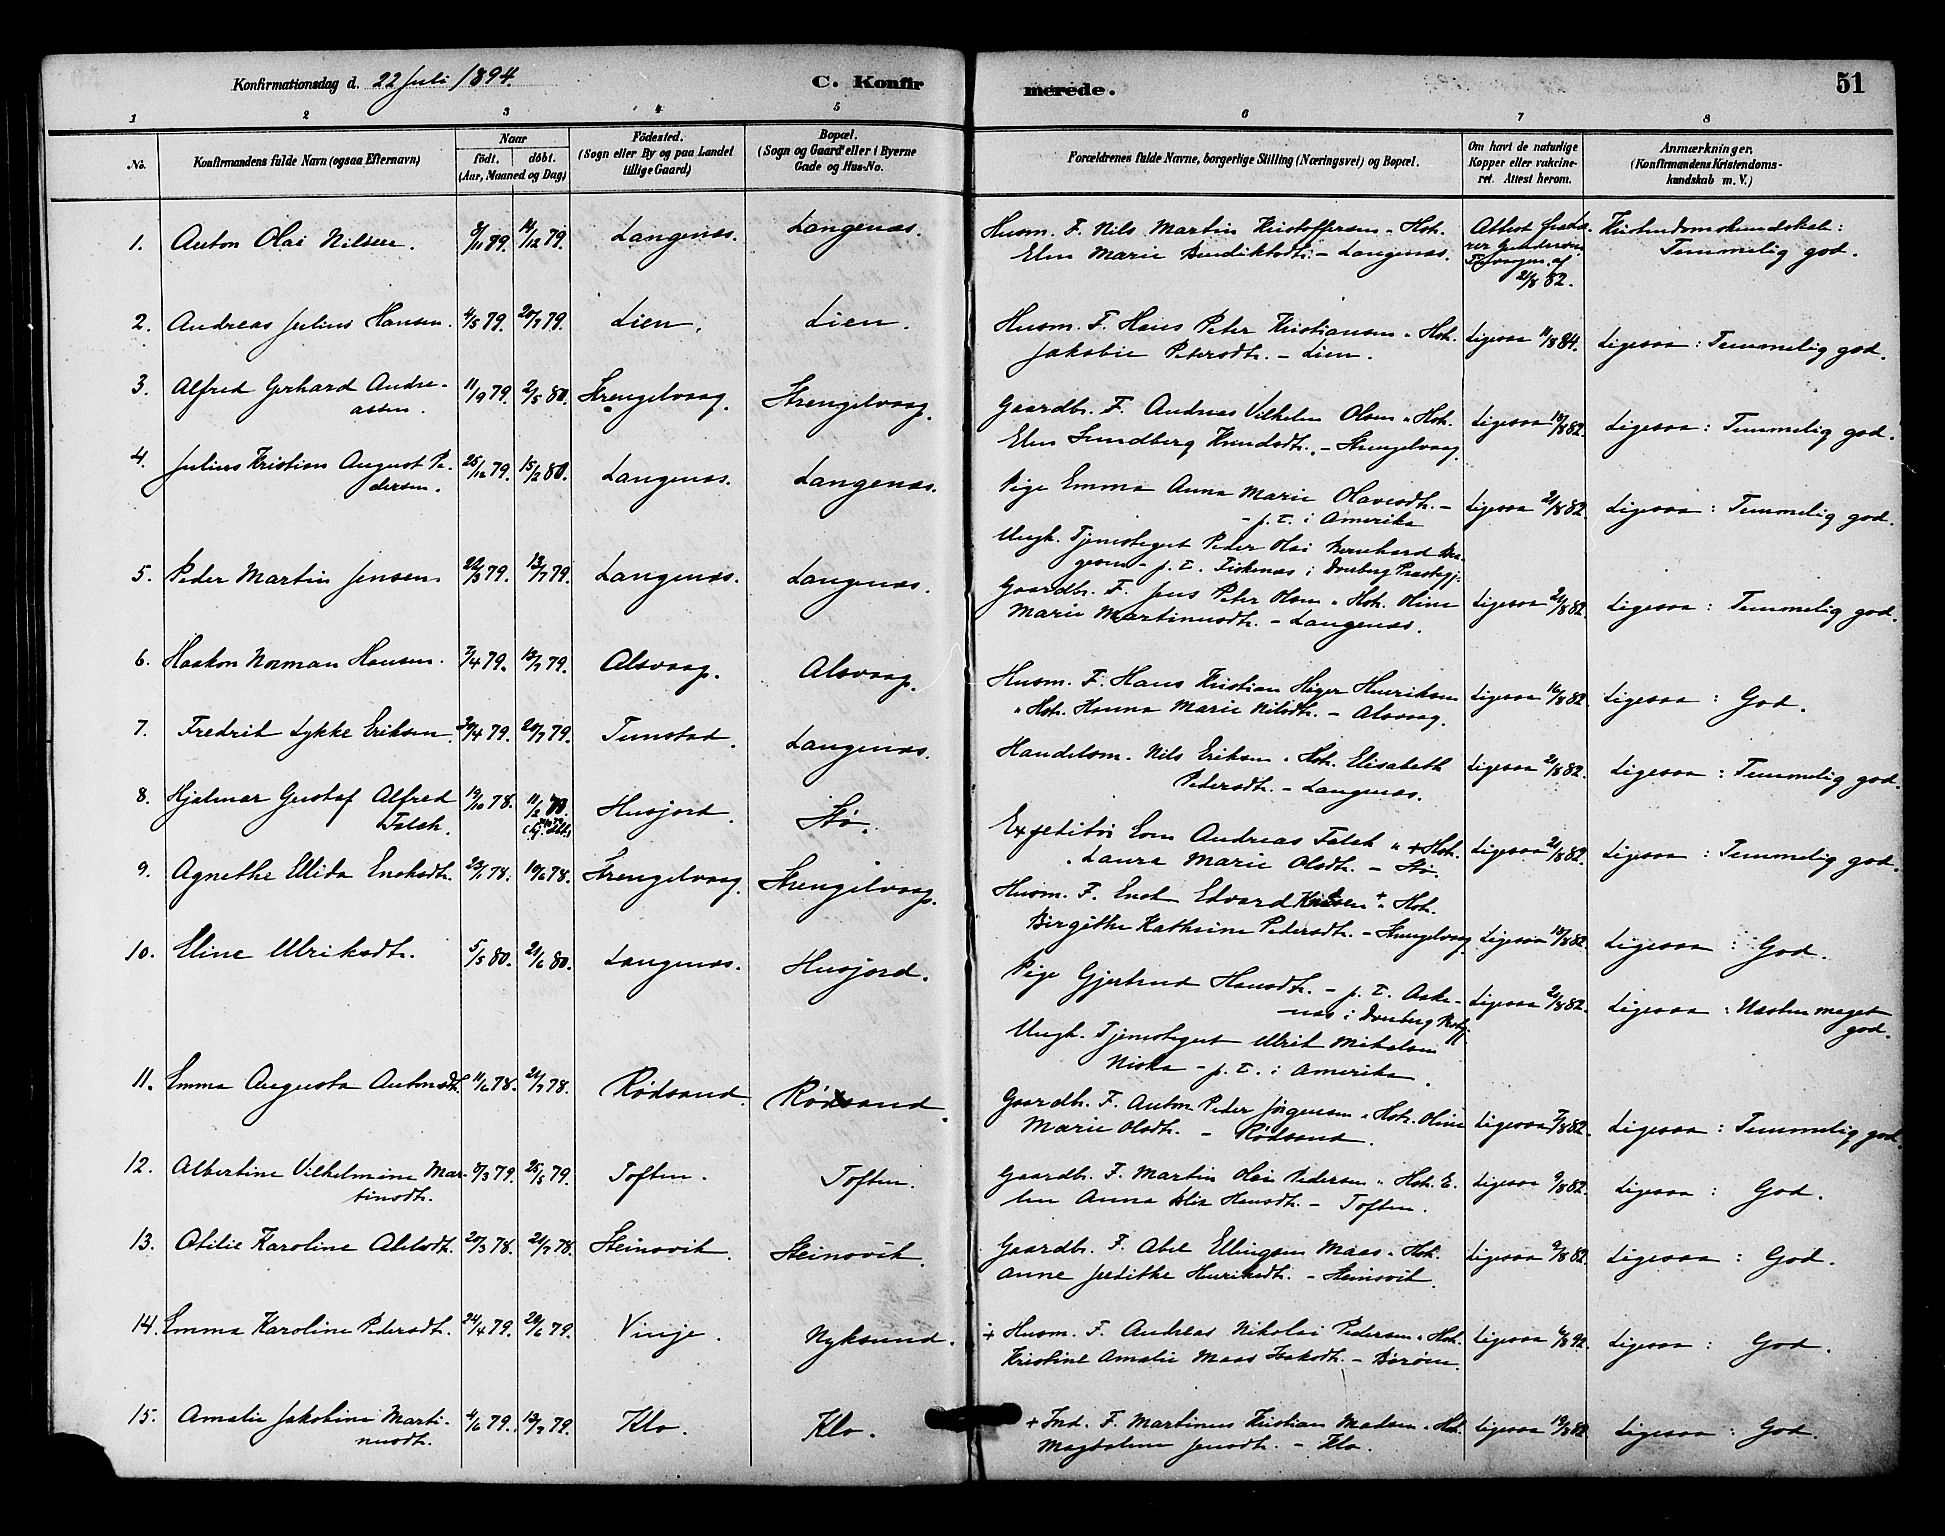 Konfirmationsdag d. 22 Juli 1894.
C. Konfirmerede.
51
1 2 3 4 5 6 7 8
No.
Konfirmandens fulde Navn (ogsaa Efternavn)
Naar
födt. döbt.
(Aar, Maaned og Dag)
Födested.
(Sogn eller By og paa Landet
tillige Gaard)
Bopæl.
(Sogn og Gaard eller i Byerne
Gade og Hus-No.
Forældrenes fulde Navne, borgerlige Stilling (Næringsvei) og Bopæl.
Om havt de naturlige
Kopper eller vakcine-
ret. Attest herom.
Anmærkninger.
(Konfirmandens Kristendoms-
kundskab m. V.)
1. Anton Olai Nilsen. 9/11 79. 14/12 79. Langenæs. Langenæs.
Husm. F. Nils Martin Kristoffersen " Hst.
Elen Marie Bendiktsdtr. - Langenæs.
Attest 21/8 82.
Kristendomskundskab:
Temmelig god.
2. Andreas Julius Hansen. 4/5 79. 20/7 79. Lien. Lien.
Husm. F. Hans Peter Kristiansen " Hst.
Jakobie Petersdtr. - Lien.
Ligesaa 11/8 84. Ligesaa: Temmelig god.
3. Alfred Gerhard Andre-
assen. 11/9 79. 2/5 80. Strengelvaag. Strengelvaag.
Gaardbr. F. Andreas Vilhelm Olsen " Hst.
Elen Sundberg Knudsdtr. - Strengelvaag.
Ligesaa 18/8 82. Ligesaa: Temmelig god.
4. Julius Kristian August Pe-
dersen. 25/12 79. 15/2 80. Langenæs. Langenæs.
Pige Emma Anna Marie Olavesdtr. -
- p. t. i Amerika
Ungk. Tjenestegut Peder Olai Bernhard
- p. t. Fiskenæs i Dverberg Præstegj.
Ligesaa 21/8 82. Ligesaa: Temmelig god.
5. Peder Martin Jensen. 22/3 79. 13/7 79. Langenæs. Langenæs.
Gaardbr. F. Jens Peter Olsen " Hst. Oline
Marie Martinusdtr. - Langenæs.
Ligesaa 21/8 82. Ligesaa: Temmelig god.
6. Haakon Norman Hansen. 7/4 79. 13/7 79. Alsvaag. Alsvaag.
Husm. F. Hans Kristian Høger Henriksen
" Hst. Hanna Marie Nilsdtr. - Alsvaag.
Ligesaa 16/8 82. Ligesaa: God.
7. Fredrik Lykke Eriksen. 30/4 79. 20/7 79. Tunstad. Langenæs.
Handelsm. Nils Eriksen " Hst. Elisabeth
Pedersdtr. - Langenæs.
Ligesaa 21/8 82. Ligesaa: Temmelig god.
8. Hjalmar Gustaf Alfred
Falch. 19/10 78. 11/2 79. Husjord. Stø.
Expeditør Lorn Andreas Falch " + Hst.
Laura Marie Olsdtr. - Stø.
Ligesaa 21/8 82. Ligesaa: Temmelig god.
9. Agnethe Ellida Enoksdtr. 23/1 78. 10/6 78. Strengelvaag. Strengelvaag.
Husm. F. Enok Edvard Knudsen + " Hst.
Birgithe Kathrine Pedersdtr. - Strengelvaag.
Ligesaa 18/8 82. Ligesaa: God.
10. Eline Ulriksdtr. 5/5 80. 21/6 80. Langenæs. Husjord.
Pige Gjertrud Hansdtr. - p. t. Aake-
næs i Dverberg Prstgj.
Ungk. Tjenestegut Ulrik Mikalsen
Niska - p. t. i Amerika.
Ligesaa 21/8 82. Ligesaa: Næsten meget
god.
11. Emma Augusta Antonsdtr. 11/6 78. 21/7 78. Rødsand. Rødsand.
Gaardbr. F. Anton Peder Jørgensen " Hst. Oline
Marie Olsdtr. - Rødsand.
Ligesaa 7/8 82. Ligesaa: Temmelig god.
12. Albertine Vilhelmine Mar-
tinsdtr. 8/3 79. 25/5 79. Toften. Toften.
Gaardbr. F. Martin Olai Pedersen " Hst. E-
len Anna Hansdtr. - Toften.
Ligesaa 9/8 82. Ligesaa: God.
13. Otilie Karoline Abelsdtr. 20/3 78. 21/7 78. Steinsvik. Steinsvik.
Gaardbr. F. Abel Ellingsen Maas " Hst.
Anne Jedithe Henriksdtr. - Steinsvik.
Ligesaa 9/8 82. Ligesaa: God.
14. Emma Karoline Pedersdtr. 24/4 79. 29/6 79. Vinje. Nyksund.
+ Husm. F. Andreas Nikolai Pedersen " Hst.
Kristine Amalie Maas Isaksdtr. - Børøen.
Ligesaa 6/8 92. Ligesaa: God.
15. Amalie Jakobine Marti-
nusdtr. 4/6 79. 13/7 79. Klo. Klo.
+ Ind. F. Martinus Kristian Madsen " Hst.
Magdalena Jensdtr. - Klo.
Ligesaa 19/8 82. Ligesaa: God.